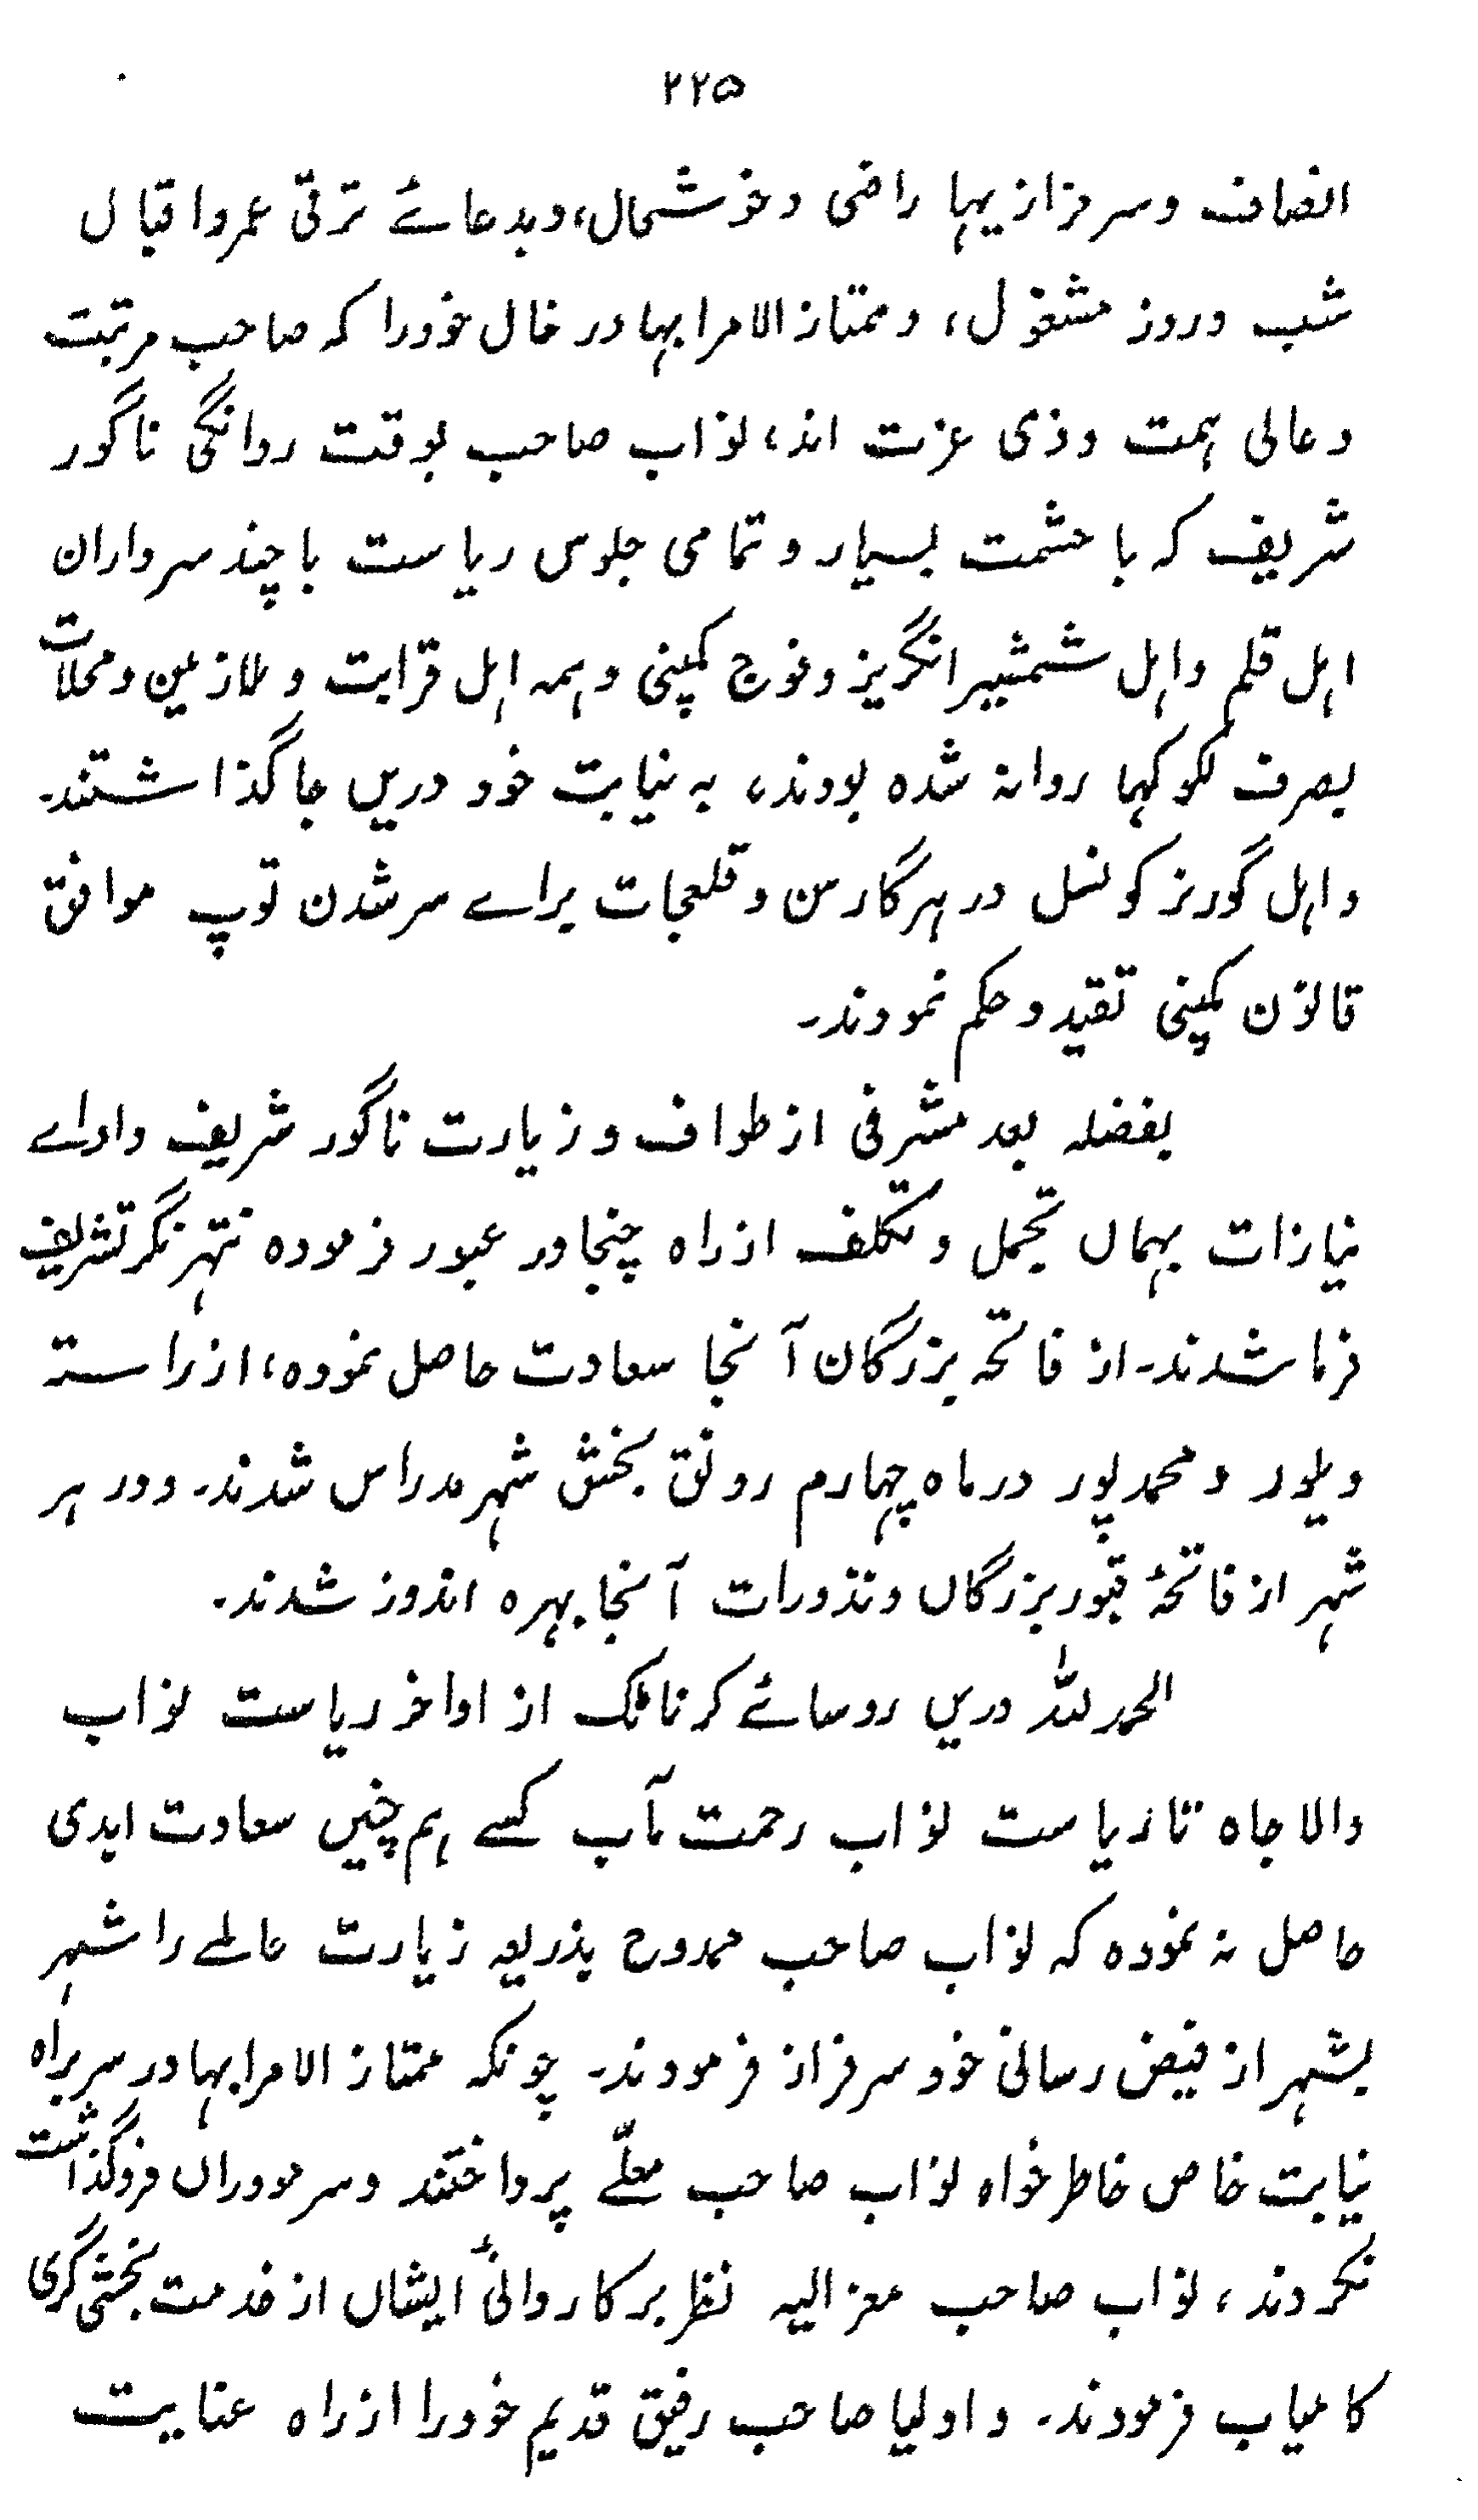 ۲۲۵
انصاف و سرفرازیہا راضی و خوشحال، و بدعائے ترقی عمر و اقبال
شب و روز مشغول، و ممتاز الامرا بہادر خال خود را کہ صاحب مرتبت
و عالی ہمت و ذی عزت اند، نواب صاحب بوقت روانگی ناگور
شریف کہ با حشمت بسیار و تمامی جلوس ریاست با چند سرداران
اہل قلم و اہل شمشیر انگریز و فوج کمپنی و ہمہ اہل قرابت و ملازمین و محلات
بصرف لکوکہا روانہ شدہ بودند، بہ نیابت خود دریں جا گذاشتند۔
و اہل گورنر کونسل در ہر گارسن و قلعجات براے سر شدن توپ موافق
قانون کمپنی تقید و حکم نمودند۔
بفضلہ بعد مشرفی از طواف و زیارت ناگور شریف و اداے
نیازات بہماں تجمل و تکلف از راہ چنجاور عبور فرمودہ نتہر نگر تشریف
فرما شدند۔ از فاتحہ بزرگان آنجا سعادت حاصل نمودہ، از راستہ
ویلور و محمد پور در ماہ چہارم رونق بخش شہر مدراس شدند۔ و در ہر
شہر از فاتحۂ قبور بزرگاں و نذورات آنجا بہرہ اندوز شدند۔
الحمد للہ دریں روسائے کرناٹک از اواخر ریاست نواب
والا جاہ تا ریاست نواب رحمت مآب کسے ہم چنیں سعادت ابدی
حاصل نہ نمودہ کہ نواب صاحب ممدوح بذریعہ زیارت عالمے را شہر
بشہر از فیض رسانی خود سرفراز فرمودند۔ چونکہ ممتاز الامرا بہادر سربراہ
نیابت خاص خاطر خواہ نواب صاحب معلّے پرداختند و سر مو دراں فروگذاشت
نکردند، نواب صاحب معز الیہ نظر بر کاردانیٔ ایشاں از خدمت بخشی گری
کامیاب فرمودند۔ و اولیا صاحب رفیق قدیم خود را از راہ عنایت